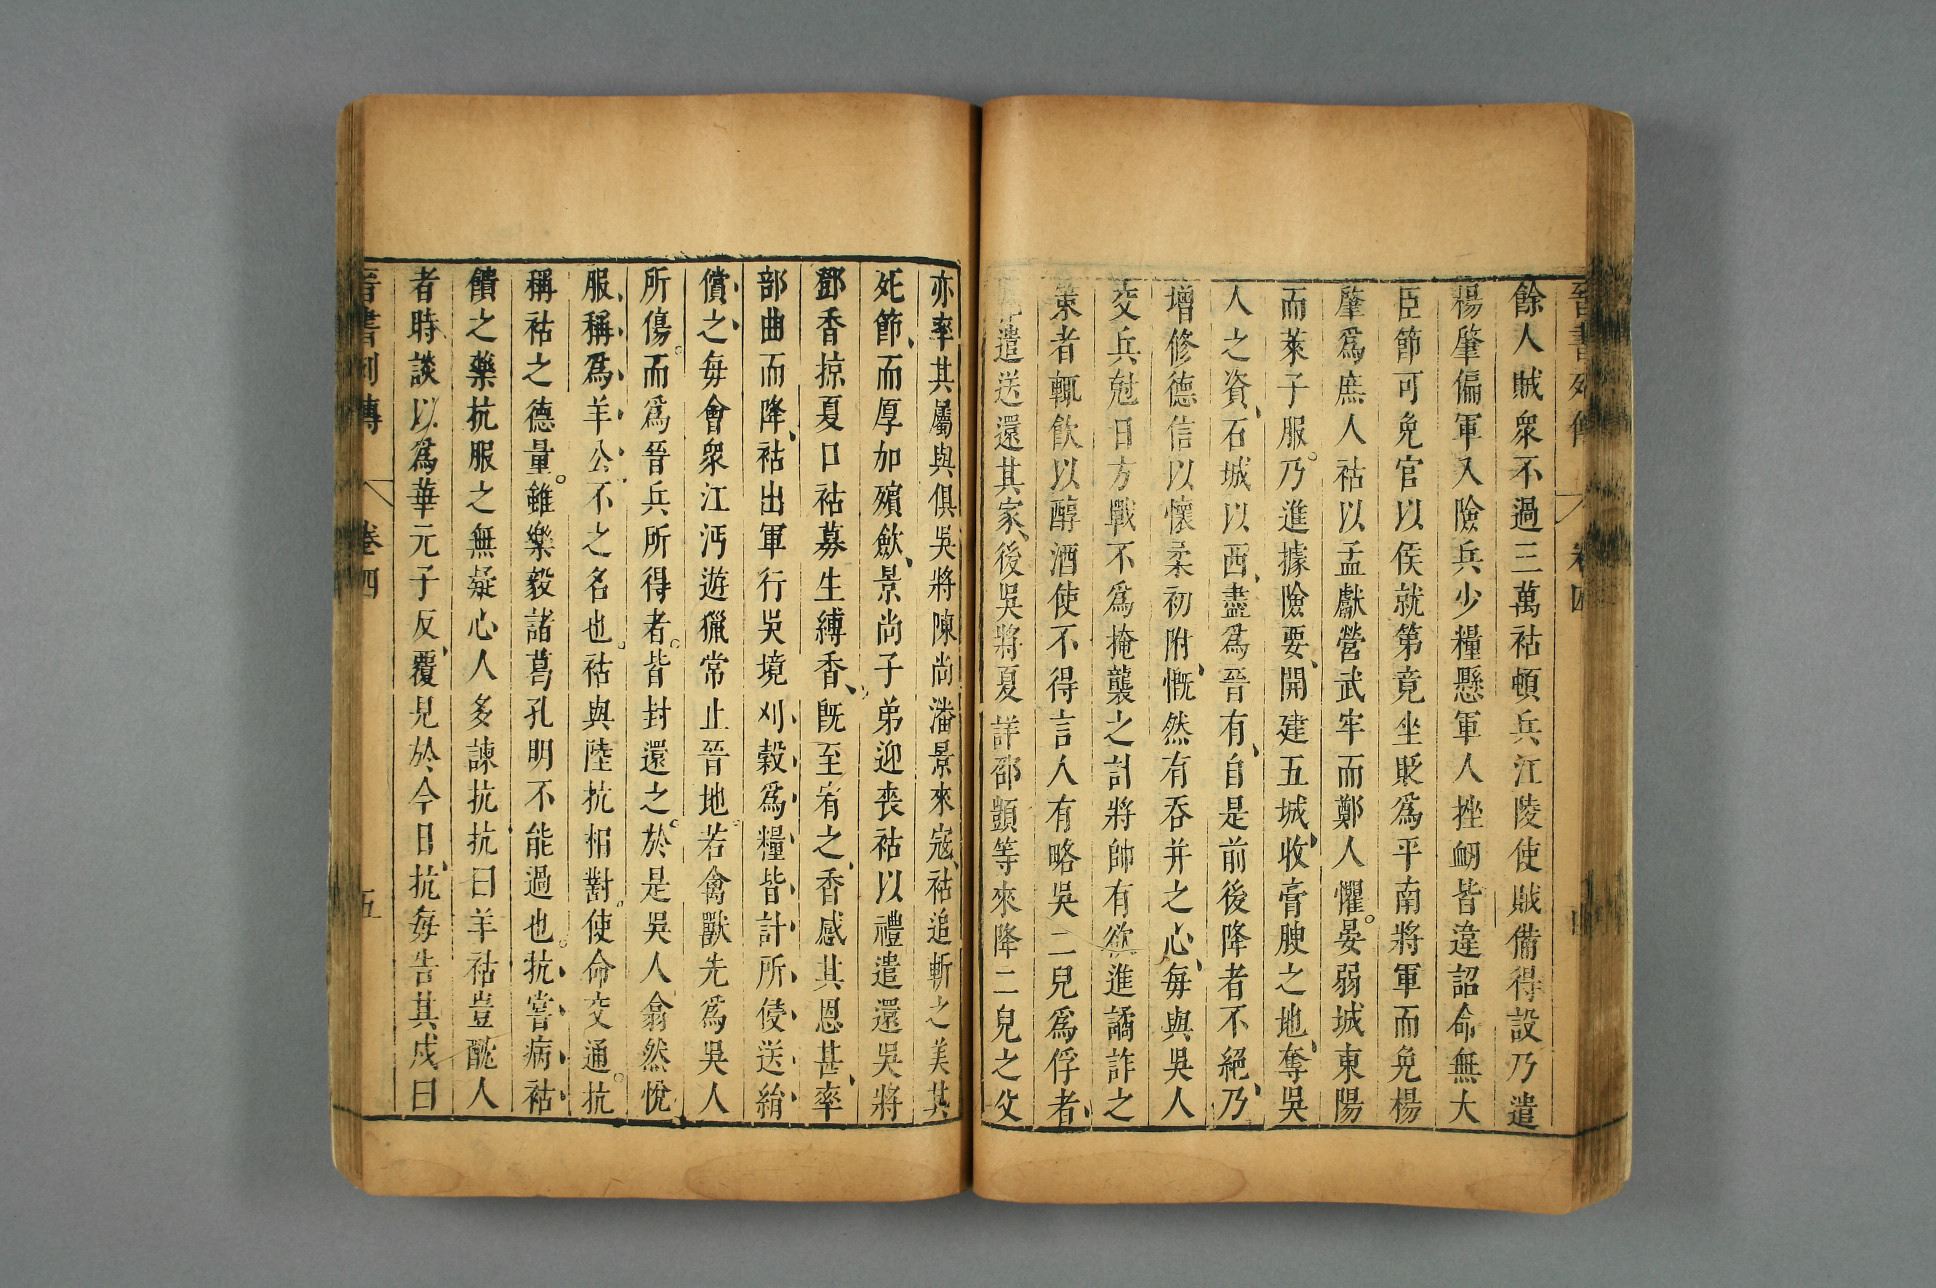 晉書列傳 卷四 四
餘人賊衆不過三萬祜頓兵江陵使賊備得設乃遣
楊肇偏軍入險兵少糧懸軍人挫衂皆違詔命無大
臣節可免官以侯就第竟坐貶爲平南將軍而免楊
肇爲庶人祜以孟獻營武牢而鄭人懼。晏弱城東陽
而萊子服。乃進據險要、開建五城、收膏腴之地、奪吳
人之資、石城以西、盡爲晉有、自是前後降者不絕、乃
增修德信以懷柔初附、慨然有吞并之心、每與吳人
交兵尅日方戰不爲掩襲之計將帥有欲進譎詐之
策者輒飲以醇酒使不得言人有略吳二兒爲俘者、
遣送還其家、後吳將夏詳邵顗等來降二兒之父
亦率其屬與俱吳將陳尚潘景來寇、祜追斬之美其
死節、而厚加殯歛、景尚子弟迎喪祜以禮遣還吳將
鄧香掠夏口祜募生縛香、旣至宥之、香感其恩甚、率
部曲而降、祜出軍行吳境刈穀爲糧皆計所侵送絹
償之每會衆江沔遊獵常止晉地。若禽獸先爲吳人
所傷。而爲晉兵所得者。皆封還之。於是吳人翕然悅
服稱爲羊公不之名也。祜與陸抗相對。使命交通。抗
稱祜之德量。雖樂毅諸葛孔明不能過也。抗嘗病祜
饋之藥抗服之無疑心人多諫抗抗曰羊祜豈酖人
者時談以爲華元子反、覆見於今日、抗每告其戍曰
晉書列傳 卷四 五